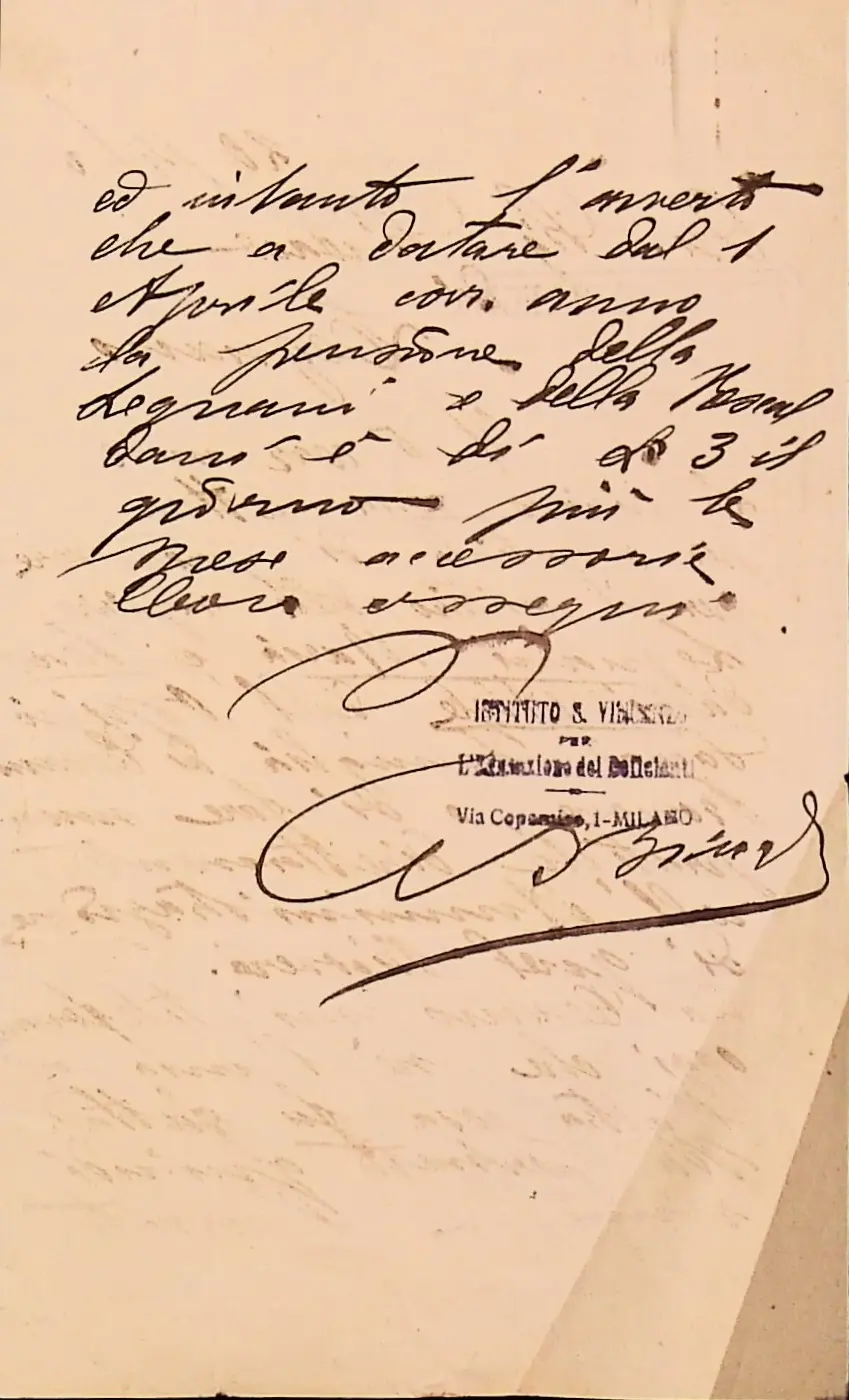 ed intanto l'averto
che a datare dal 1
Aprile corr. anno
la pensione della
Legnani e della
dani è di L 3 il
giorno più le
spese accessorie
ossequi
ISTITUTO S. VINCENZO
PER
L'Educazione dei Deficienti
Via Copernico, 1-MILANO